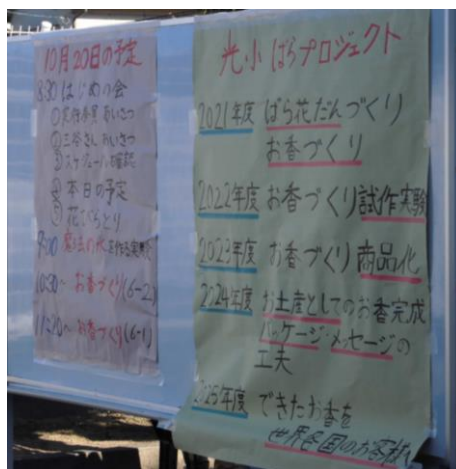 10月20日の予定
8:30 はじめの会
① 実行委員あいさつ
② 三谷さんあいさつ
③ スケジュール確認
④ 本日の予定
⑤ 花びらとり
9:00
10:30~ お香づくり(6-2)
11:20~ お香づくり(6-1)
光小 ばらプロジェクト
2021年度 ばら花だんづくり
お香づくり
2022年度 お香づくり試作実験
2023年度 お香づくり商品化
2024年度 お土産としてのお香完成
パッケージ・メッセージの
工夫
2025年度 できたお香を
世界各国のお客様